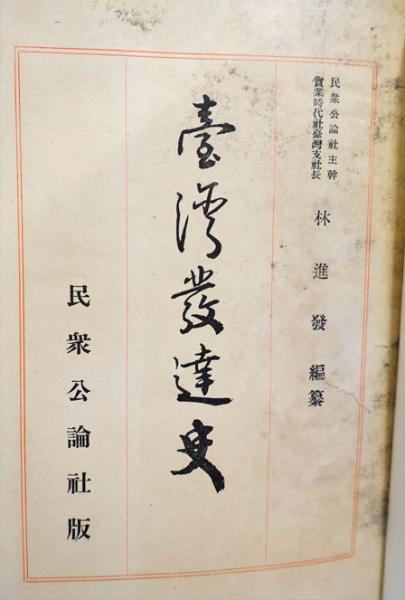 民衆公論社主幹
實業時代社臺灣支社長
林進發編纂
臺灣發達史
民衆公論社版